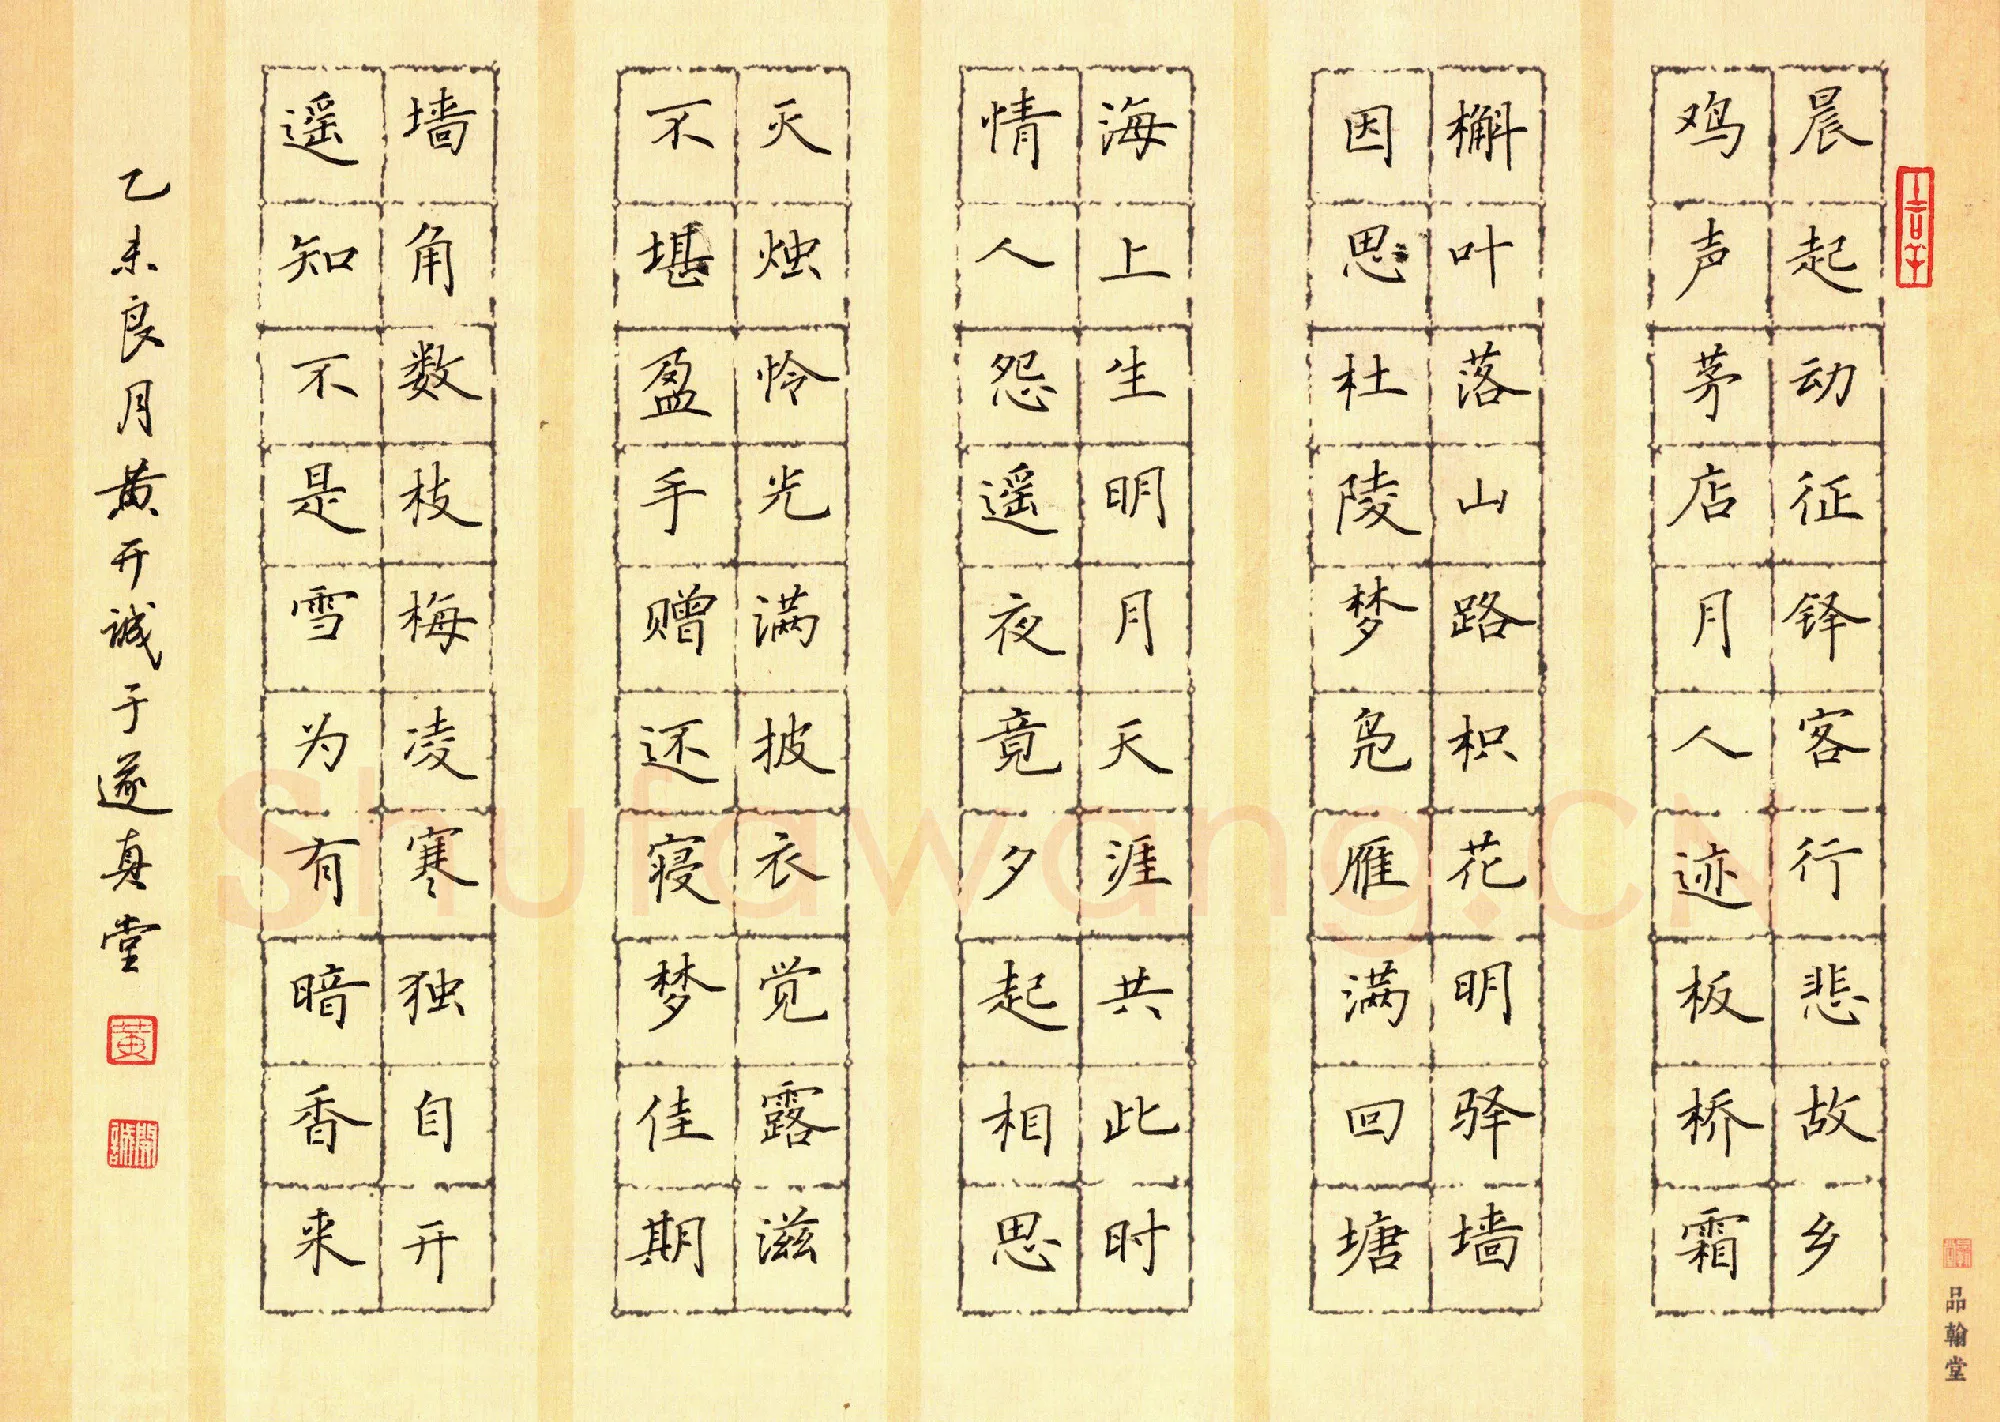 晨起动征铎客行悲故乡
鸡声茅店月人迹板桥霜
槲叶落山路枳花明驿墙
因思杜陵梦凫雁满回塘
海上生明月天涯共此时
情人怨遥夜竟夕起相思
灭烛怜光满披衣觉露滋
不堪盈手赠还寝梦佳期
墙角数枝梅凌寒独自开
遥知不是雪为有暗香来
乙未良月黄开诚于遂真堂
黄
品翰堂
Shufawang.CN